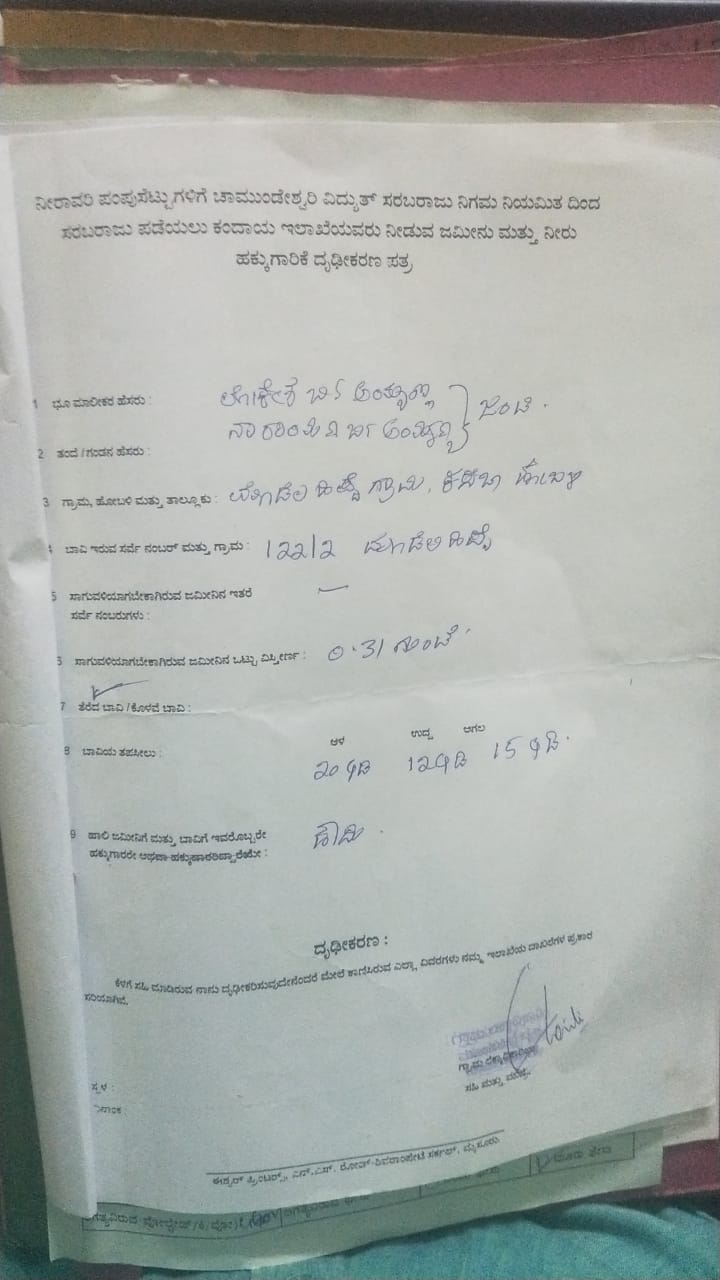 ನೀರಾವರಿ ಪಂಪುಸೆಟ್ಟುಗಳಿಗೆ ಚಾಮುಂಡೇಶ್ವರಿ ವಿದ್ಯುತ್ ಸರಬರಾಜು ನಿಗಮ ನಿಯಮಿತ ದಿಂದ
ಸರಬರಾಜು ಪಡೆಯಲು ಕಂದಾಯ ಇಲಾಖೆಯವರು ನೀಡುವ ಜಮೀನು ಮತ್ತು ನೀರು
ಹಕ್ಕುಗಾರಿಕೆ ದೃಢೀಕರಣ ಪತ್ರ
1 ಭೂ ಮಾಲೀಕರ ಹೆಸರು : ಲೋಕೇಶ ಬಿನ್
ಜಂಟಿ .
2 ತಂದೆ / ಗಂಡನ ಹೆಸರು :
3 ಗ್ರಾಮ, ಹೋಬಳಿ ಮತ್ತು ತಾಲ್ಲೂಕು : ಗ್ರಾಮ, ಹೋಬಳಿ
4 ಬಾವಿ ಇರುವ ಸರ್ವೆ ನಂಬರ್ ಮತ್ತು ಗ್ರಾಮ : 122/2
5 ಸಾಗುವಳಿಯಾಗಬೇಕಾಗಿರುವ ಜಮೀನಿನ ಇತರೆ —
ಸರ್ವೆ ನಂಬರುಗಳು :
6 ಸಾಗುವಳಿಯಾಗಬೇಕಾಗಿರುವ ಜಮೀನಿನ ಒಟ್ಟು ವಿಸ್ತೀರ್ಣ : 0.31 ಗುಂಟೆ.
7 ತೆರೆದ ಬಾವಿ / ಕೊಳವೆ ಬಾವಿ :
ಆಳ ಉದ್ದ ಅಗಲ
8 ಬಾವಿಯ ತಪಸೀಲು : 20 ಅಡಿ 12 ಅಡಿ 15 ಅಡಿ.
9 ಹಾಲಿ ಜಮೀನಿಗೆ ಮತ್ತು ಬಾವಿಗೆ ಇವರೊಬ್ಬರೇ ಹೌದು .
ಹಕ್ಕುಗಾರರೇ ಅಥವಾ ಹಕ್ಕುದಾರರಿದ್ದಾರೆಯೇ :
ದೃಢೀಕರಣ :
ಕೆಳಗೆ ಸಹಿ ಮಾಡಿರುವ ನಾನು ದೃಢೀಕರಿಸುವುದೇನೆಂದರೆ ಮೇಲೆ ಕಾಣಿಸಿರುವ ಎಲ್ಲಾ ವಿವರಗಳು ನಮ್ಮ ಇಲಾಖೆಯ ದಾಖಲೆಗಳ ಪ್ರಕಾರ
ಸರಿಯಾಗಿವೆ.
ಗ್ರಾಮ ಲೆಕ್ಕಾಧಿಕಾರಿಯ
ಸ್ಥಳ : ಸಹಿ ಮತ್ತು ಮೊಹರು
ದಿನಾಂಕ
ಈಶ್ವರ್ ಪ್ರಿಂಟರ್ಸ್, ಎನ್.ಎಸ್. ರೋಡ್-ಶಿವರಾಂಪೇಟೆ ಸರ್ಕಲ್, ಮೈಸೂರು